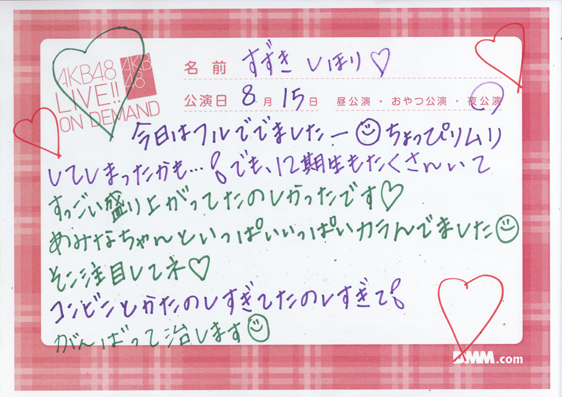 AKB48
LIVE!!
ON DEMAND
AKB
48
名前 すずき しほり♡
公演日 8月15日 昼公演・おやつ公演・夜公演
今日はフルででました－☺ちょっぴりムリ
してしまったかも…！でも、12期生もたくさんいて
すっごい盛り上がってたのしかったです♡
あみなちゃんといっぱいいっぱいカラんでました☺
そこ注目してネ♡
コンビンとかたのしすぎてたのしすぎて！
がんばって治します☺
DMM.com